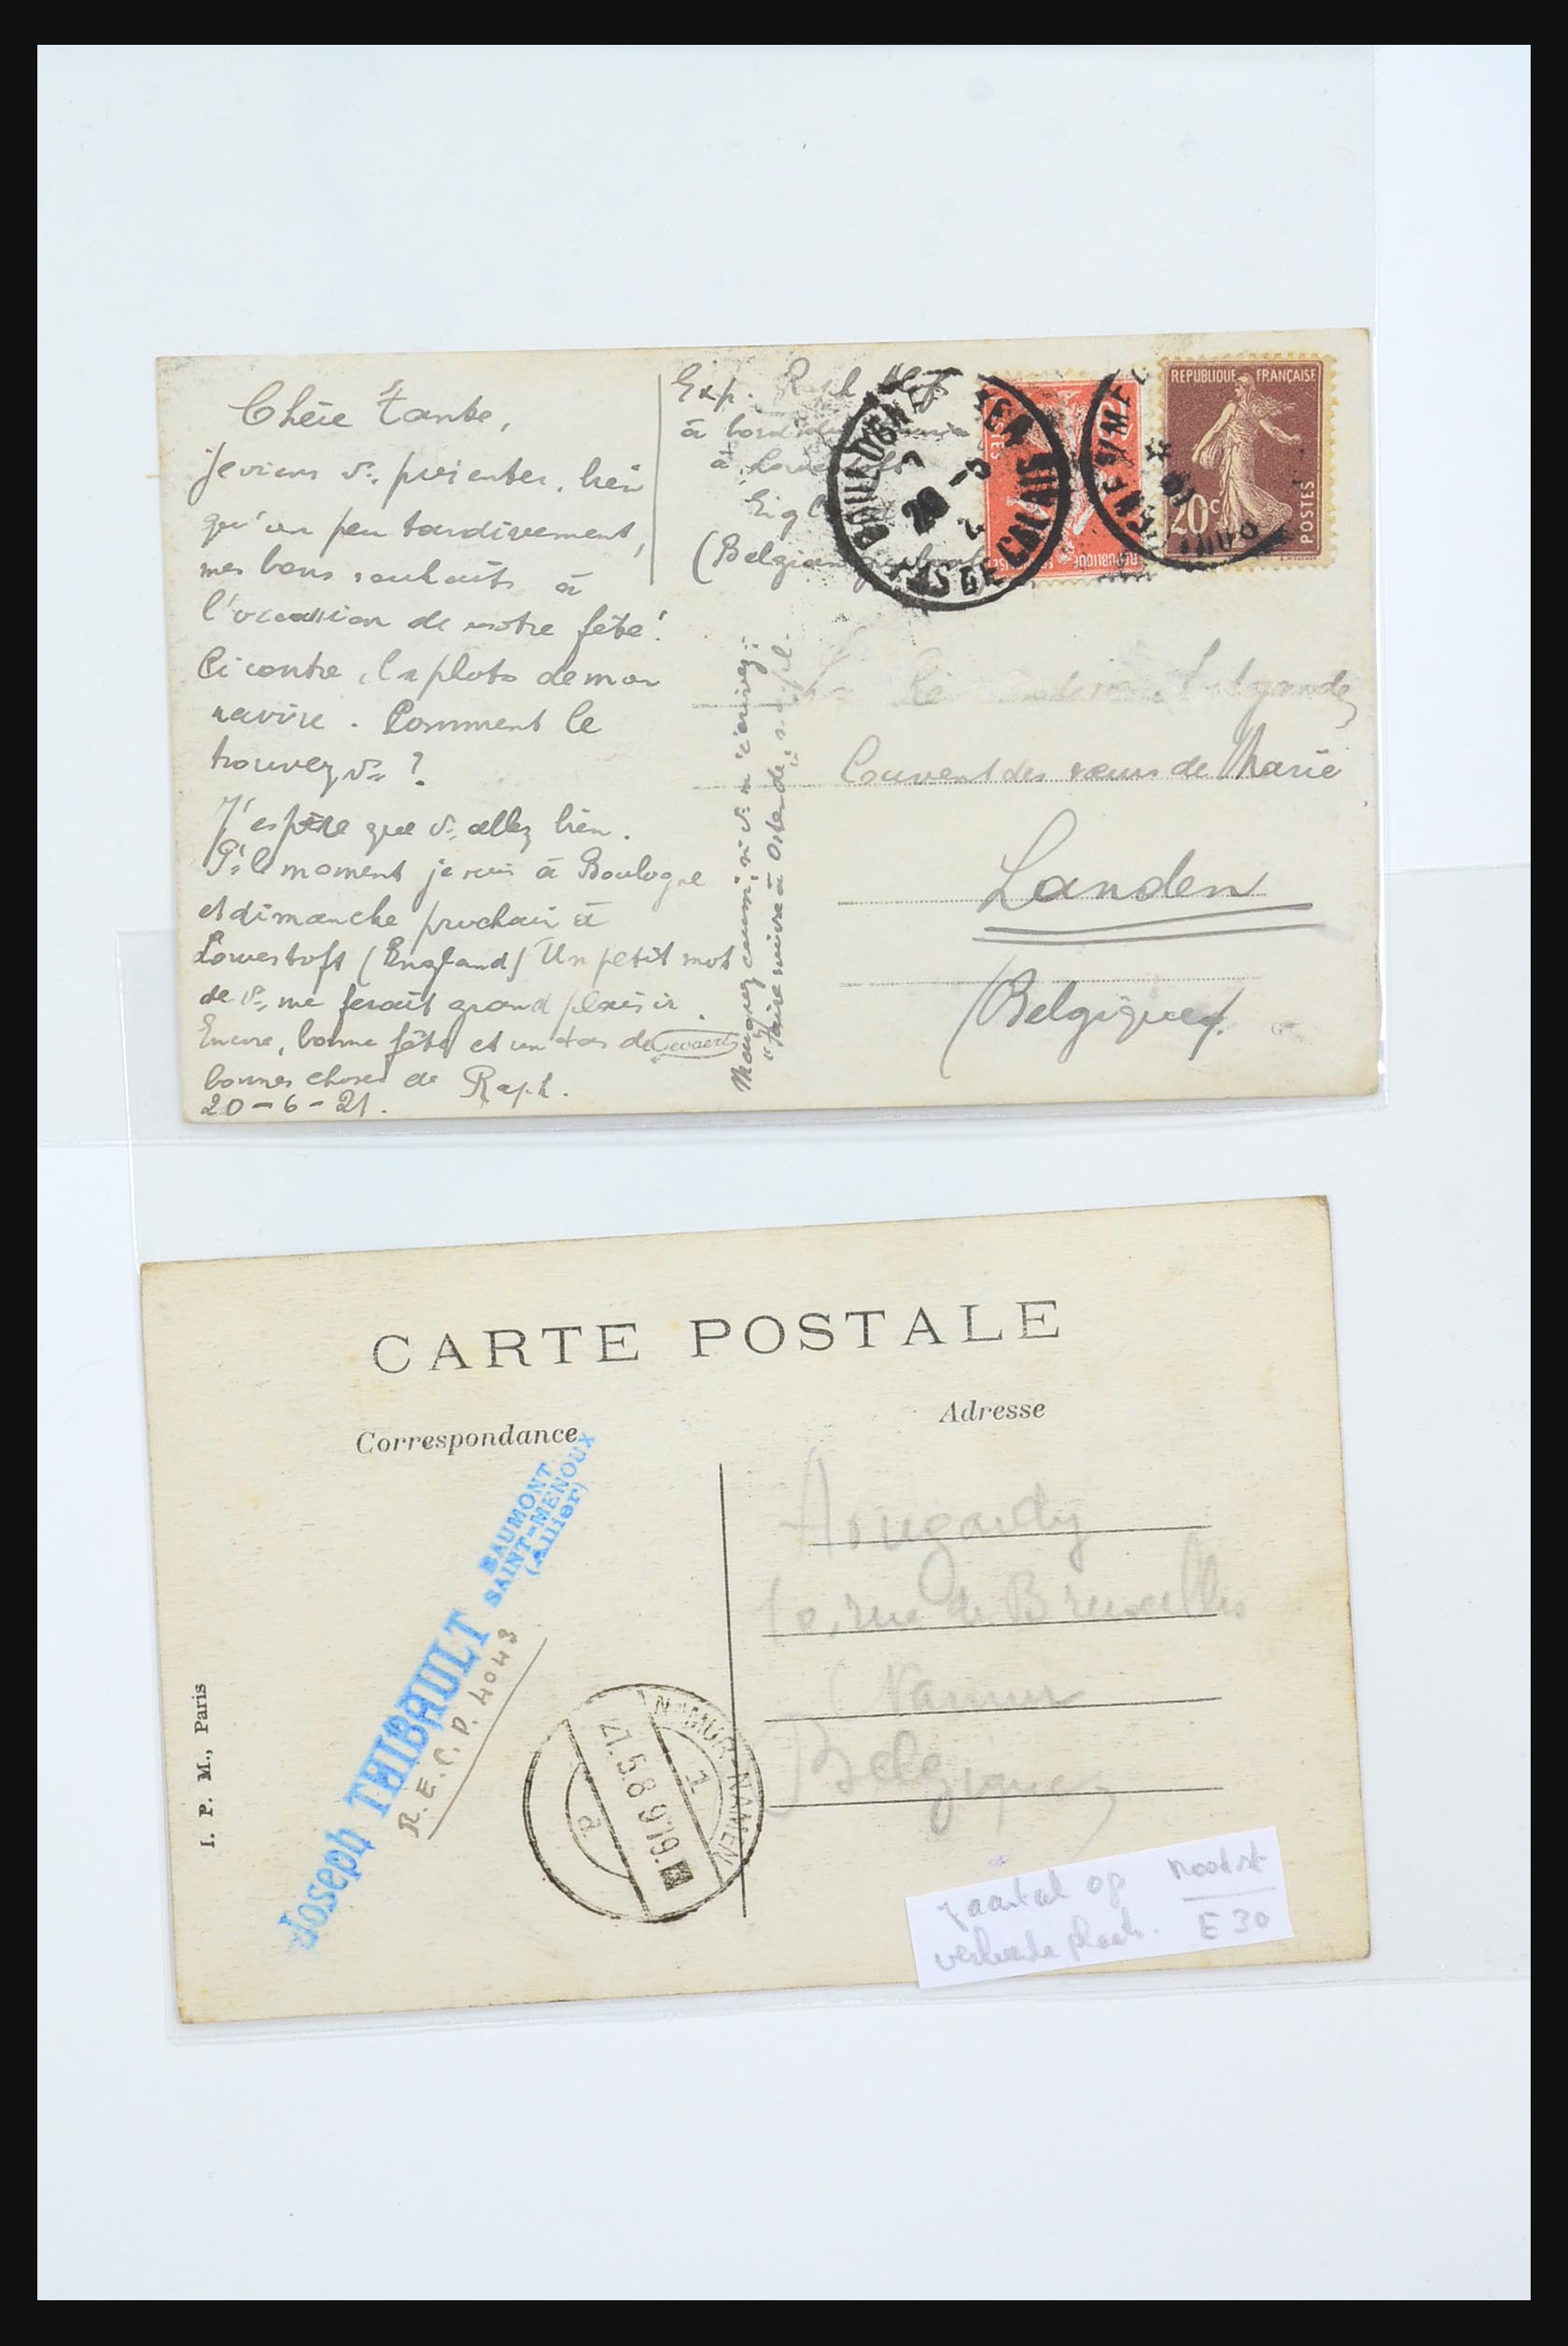 Chère tante,
Je viens vs. présenter, bien
qu'un peu tardivement,
mes bons souhaits à
l'occasion de votre fête!
Ci contre, la photo de mon
navire. Comment le
trouvez vs ?
J'espère que vs. allez bien.
Pr. le moment je suis à Boulogne
et dimanche prochain à
Lowestoft (England) Un petit mot
de vs. me ferait grand plaisir.
Encore, bonne fête et un tas de
bonnes choses de Raph.
20-6-21.
Gevaert
Exp. Raph
à bord du
à Lowestoft
(Belgian
BOULOGNE S/MER
PAS DE CALAIS
REPUBLIQUE FRANÇAISE
20c
POSTES
"faire suivre à Ostende, s.v.pl.
Couvent des sœurs de Marie
Landen
(Belgique).
CARTE POSTALE
Correspondance
Adresse
I. P. M., Paris
Joseph THIBAULT
BAUMONT
SAINT-MENOUX
(Allier)
R.E.C.P. 4043
NAMUR-NAMEN
1
21.5.8 9.19.
d
10, rue de Bruxelles
Namur
Belgique
jaartal op
verkeerde plaats.
E 30